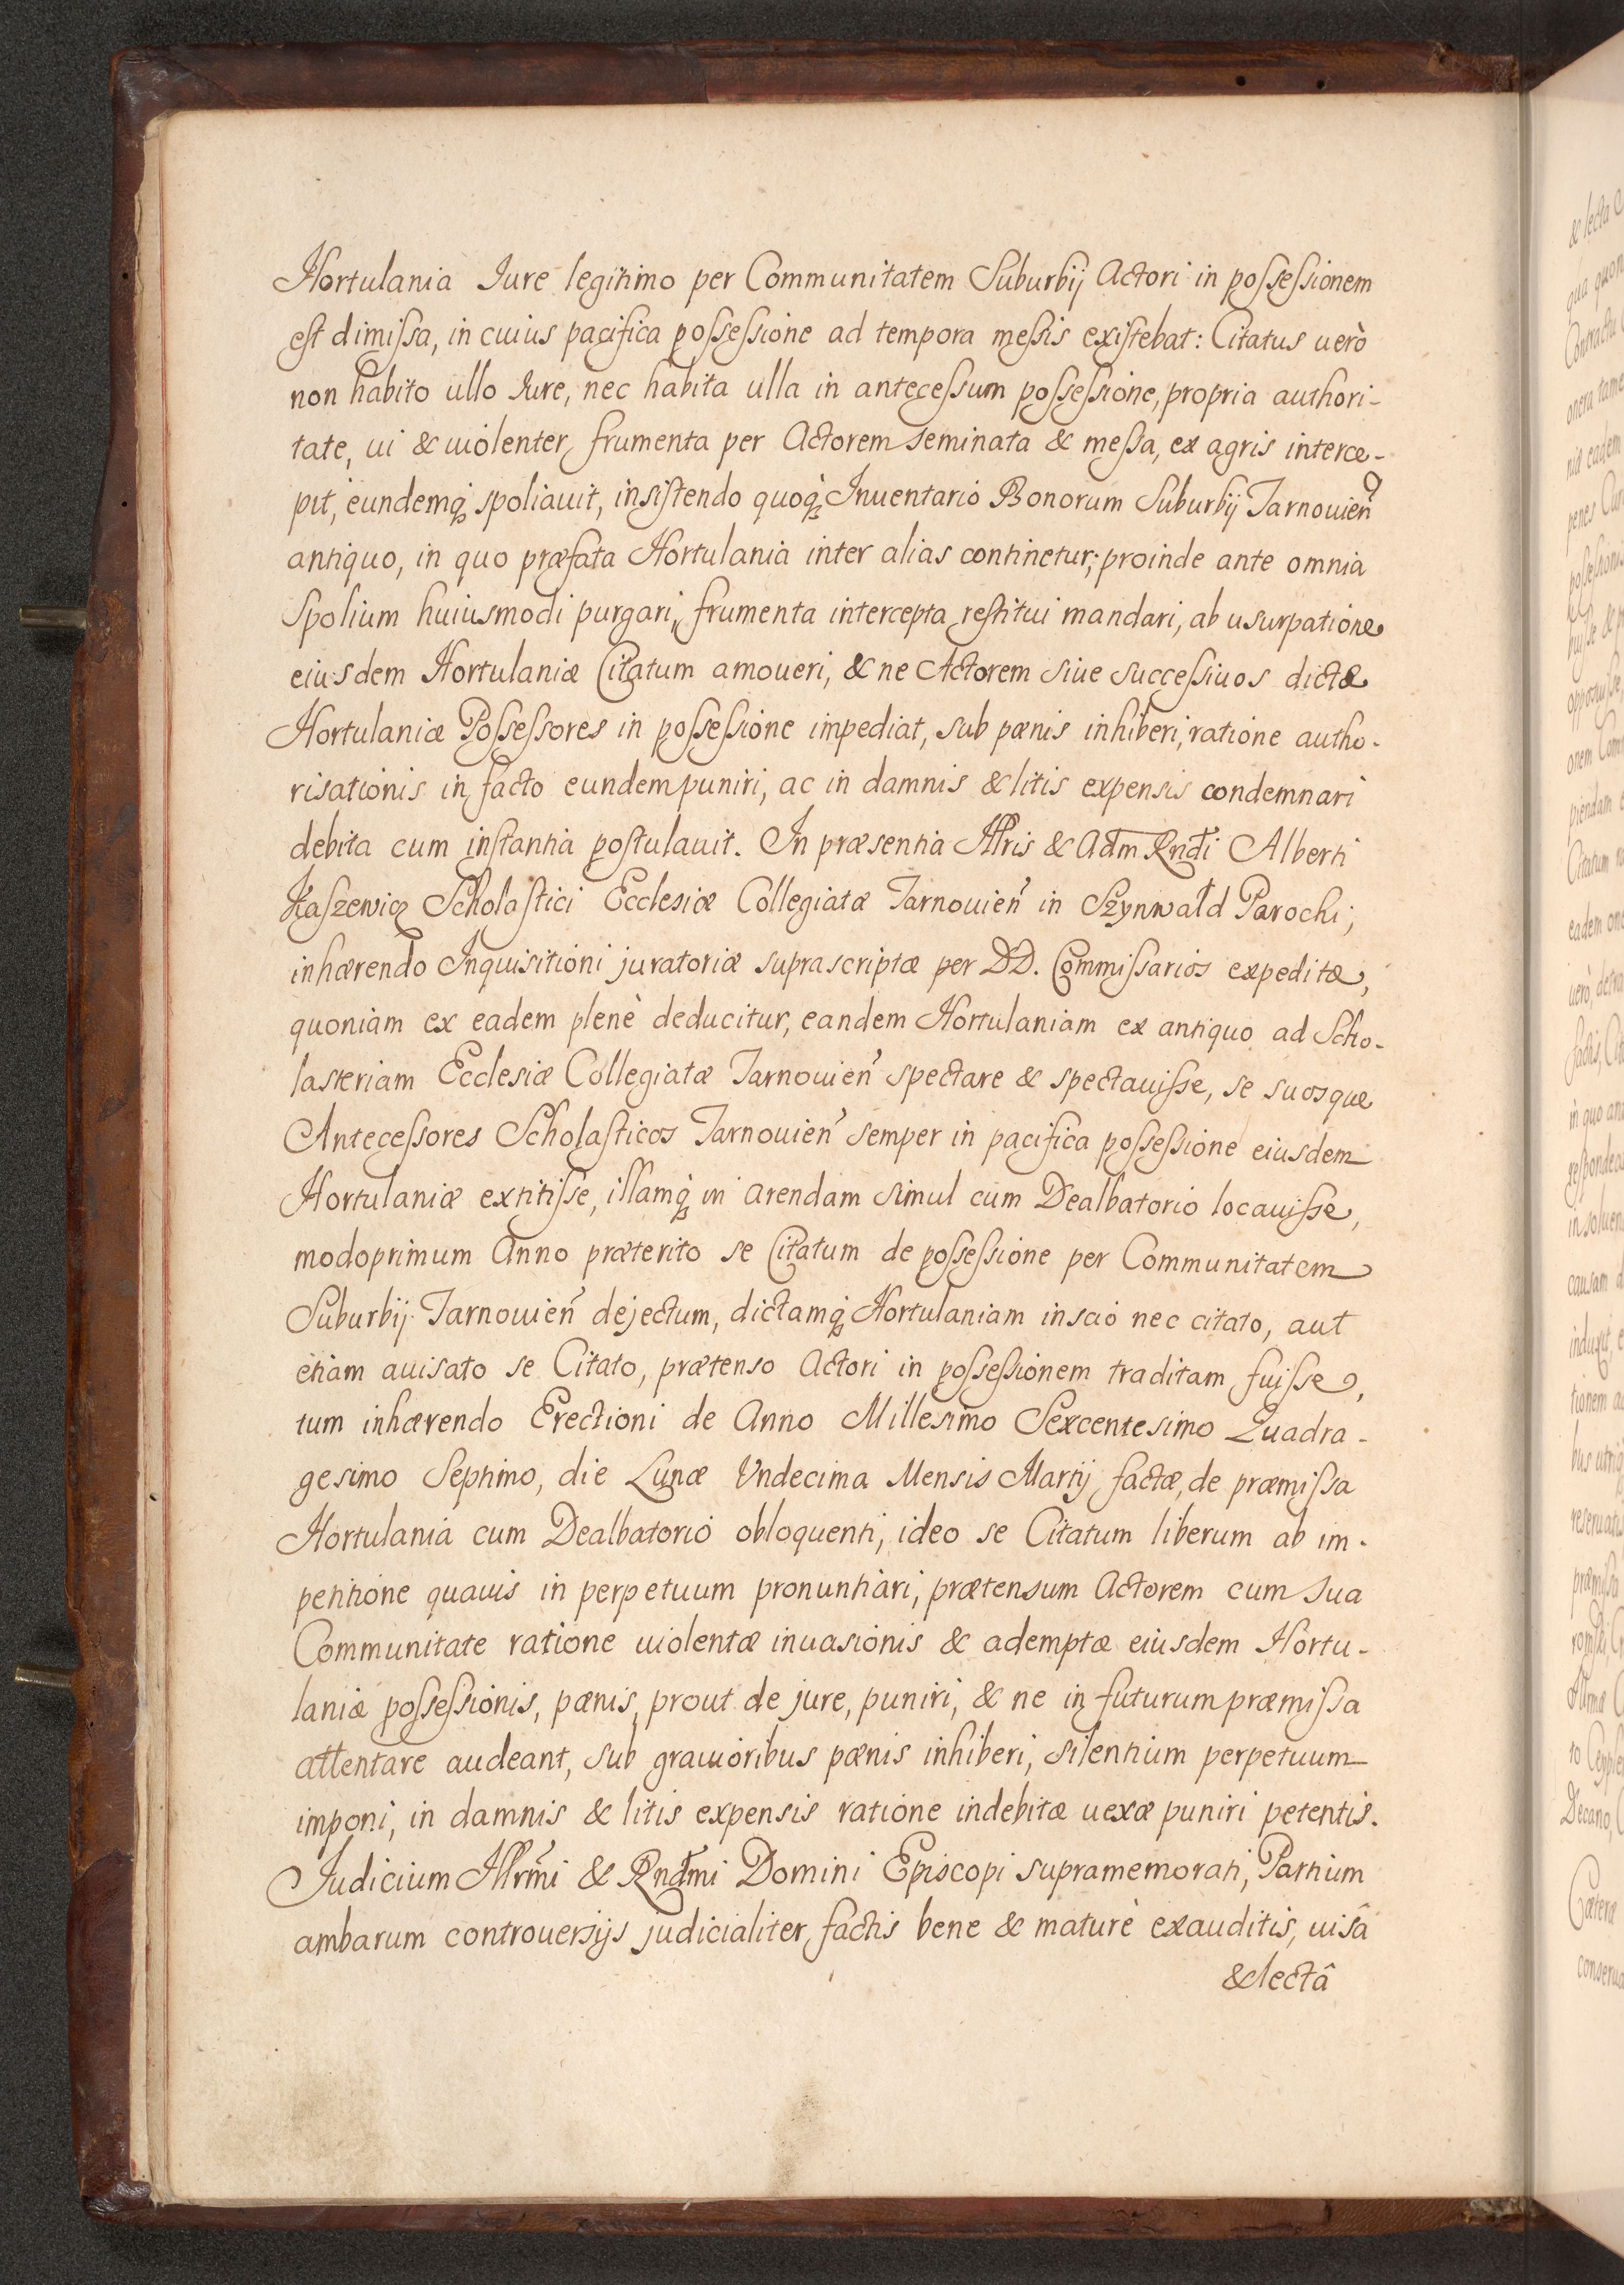 Hortulania Iure legitimo per Communitatem Suburbij Actori in poſseſsionem
eſt dimiſsa, in cuius pacifica poſseſsione ad tempora meſsis exiſtebat: Citatus uerò
non habito ullo Iure, nec habita ulla in anteceſsum poſseſsione, propria authori-
tate, ui & uiolenter frumenta per Actorem seminata & meſsa, ex agris interce-
pit, eundemq́ꝫ spoliauit, insiſtendo quoq́ꝫ Inuentario Bonorum Suburbij Tarnouien̄
antiquo, in quo præfata Hortulania inter alias continetur; proinde ante omnia
Spolium huiusmodi purgari, frumenta intercepta reſtitui mandari, ab usurpatione
eiusdem Hortulaniæ Citatum amoueri, & ne Actorem siue succeſsiuos dictæ
Hortulaniæ Poſseſsores in poſseſsione impediat, sub pœnis inhiberi, ratione autho-
risationis in facto eundem puniri, ac in damnis & litis expensis condemnari
debita cum inſtantia poſtulauit. In præsentia Illris & Adm Rndi Alberti
Kaſzewicz Scholaſtici Ecclesiæ Collegiatæ Tarnouien̄ in Szynwałd Parochi;
inhærendo Inquisitioni juratoriæ suprascriptæ per DD. Commiſsarios expeditæ,
quoniam ex eadem plenè deducitur, eandem Hortulaniam ex antiquo ad Scho-
lasteriam Ecclesiæ Collegiatæ Tarnouien̄ spectare & spectauiſse, se suosque
Anteceſsores Scholaſticos Tarnouien̄ semper in pacifica poſseſsione eiusdem
Hortulaniæ extitiſse, illamq́ꝫ in arendam simul cum Dealbatorio locauiſse,
modoprimum Anno præterito se Citatum de poſseſsione per Communitatem
Suburbij Tarnouien̄ dejectum, dictamq́ꝫ Hortulaniam inscio nec citato, aut
etiam auisato se Citato, prætenso Actori in poſseſsionem traditam fuiſse,
tum inhærendo Erectioni de Anno Millesimo Sexcentesimo Quadra-
gesimo Septimo, die Lunæ Vndecima Mensis Martij factæ, de præmiſsa
Hortulania cum Dealbatorio obloquenti, ideo se Citatum liberum ab im-
petitione quauis in perpetuum pronuntiari, prætensum Actorem cum sua
Communitate ratione uiolentæ inuasionis & ademptæ eiusdem Hortu-
laniæ poſseſsionis, pœnis, prout de jure, puniri, & ne in futurum præmiſsa
attentare audeant, sub grauioribus pœnis inhiberi, silentium perpetuum
imponi, in damnis & litis expensis ratione indebitæ uexæ puniri petentis.
Judicium Illrm̄i & Rndmi Domini Episcopi supramemorati, Partium
ambarum controuersijs judicialiter factis bene & maturè exauditis, uisâ
& lectâ